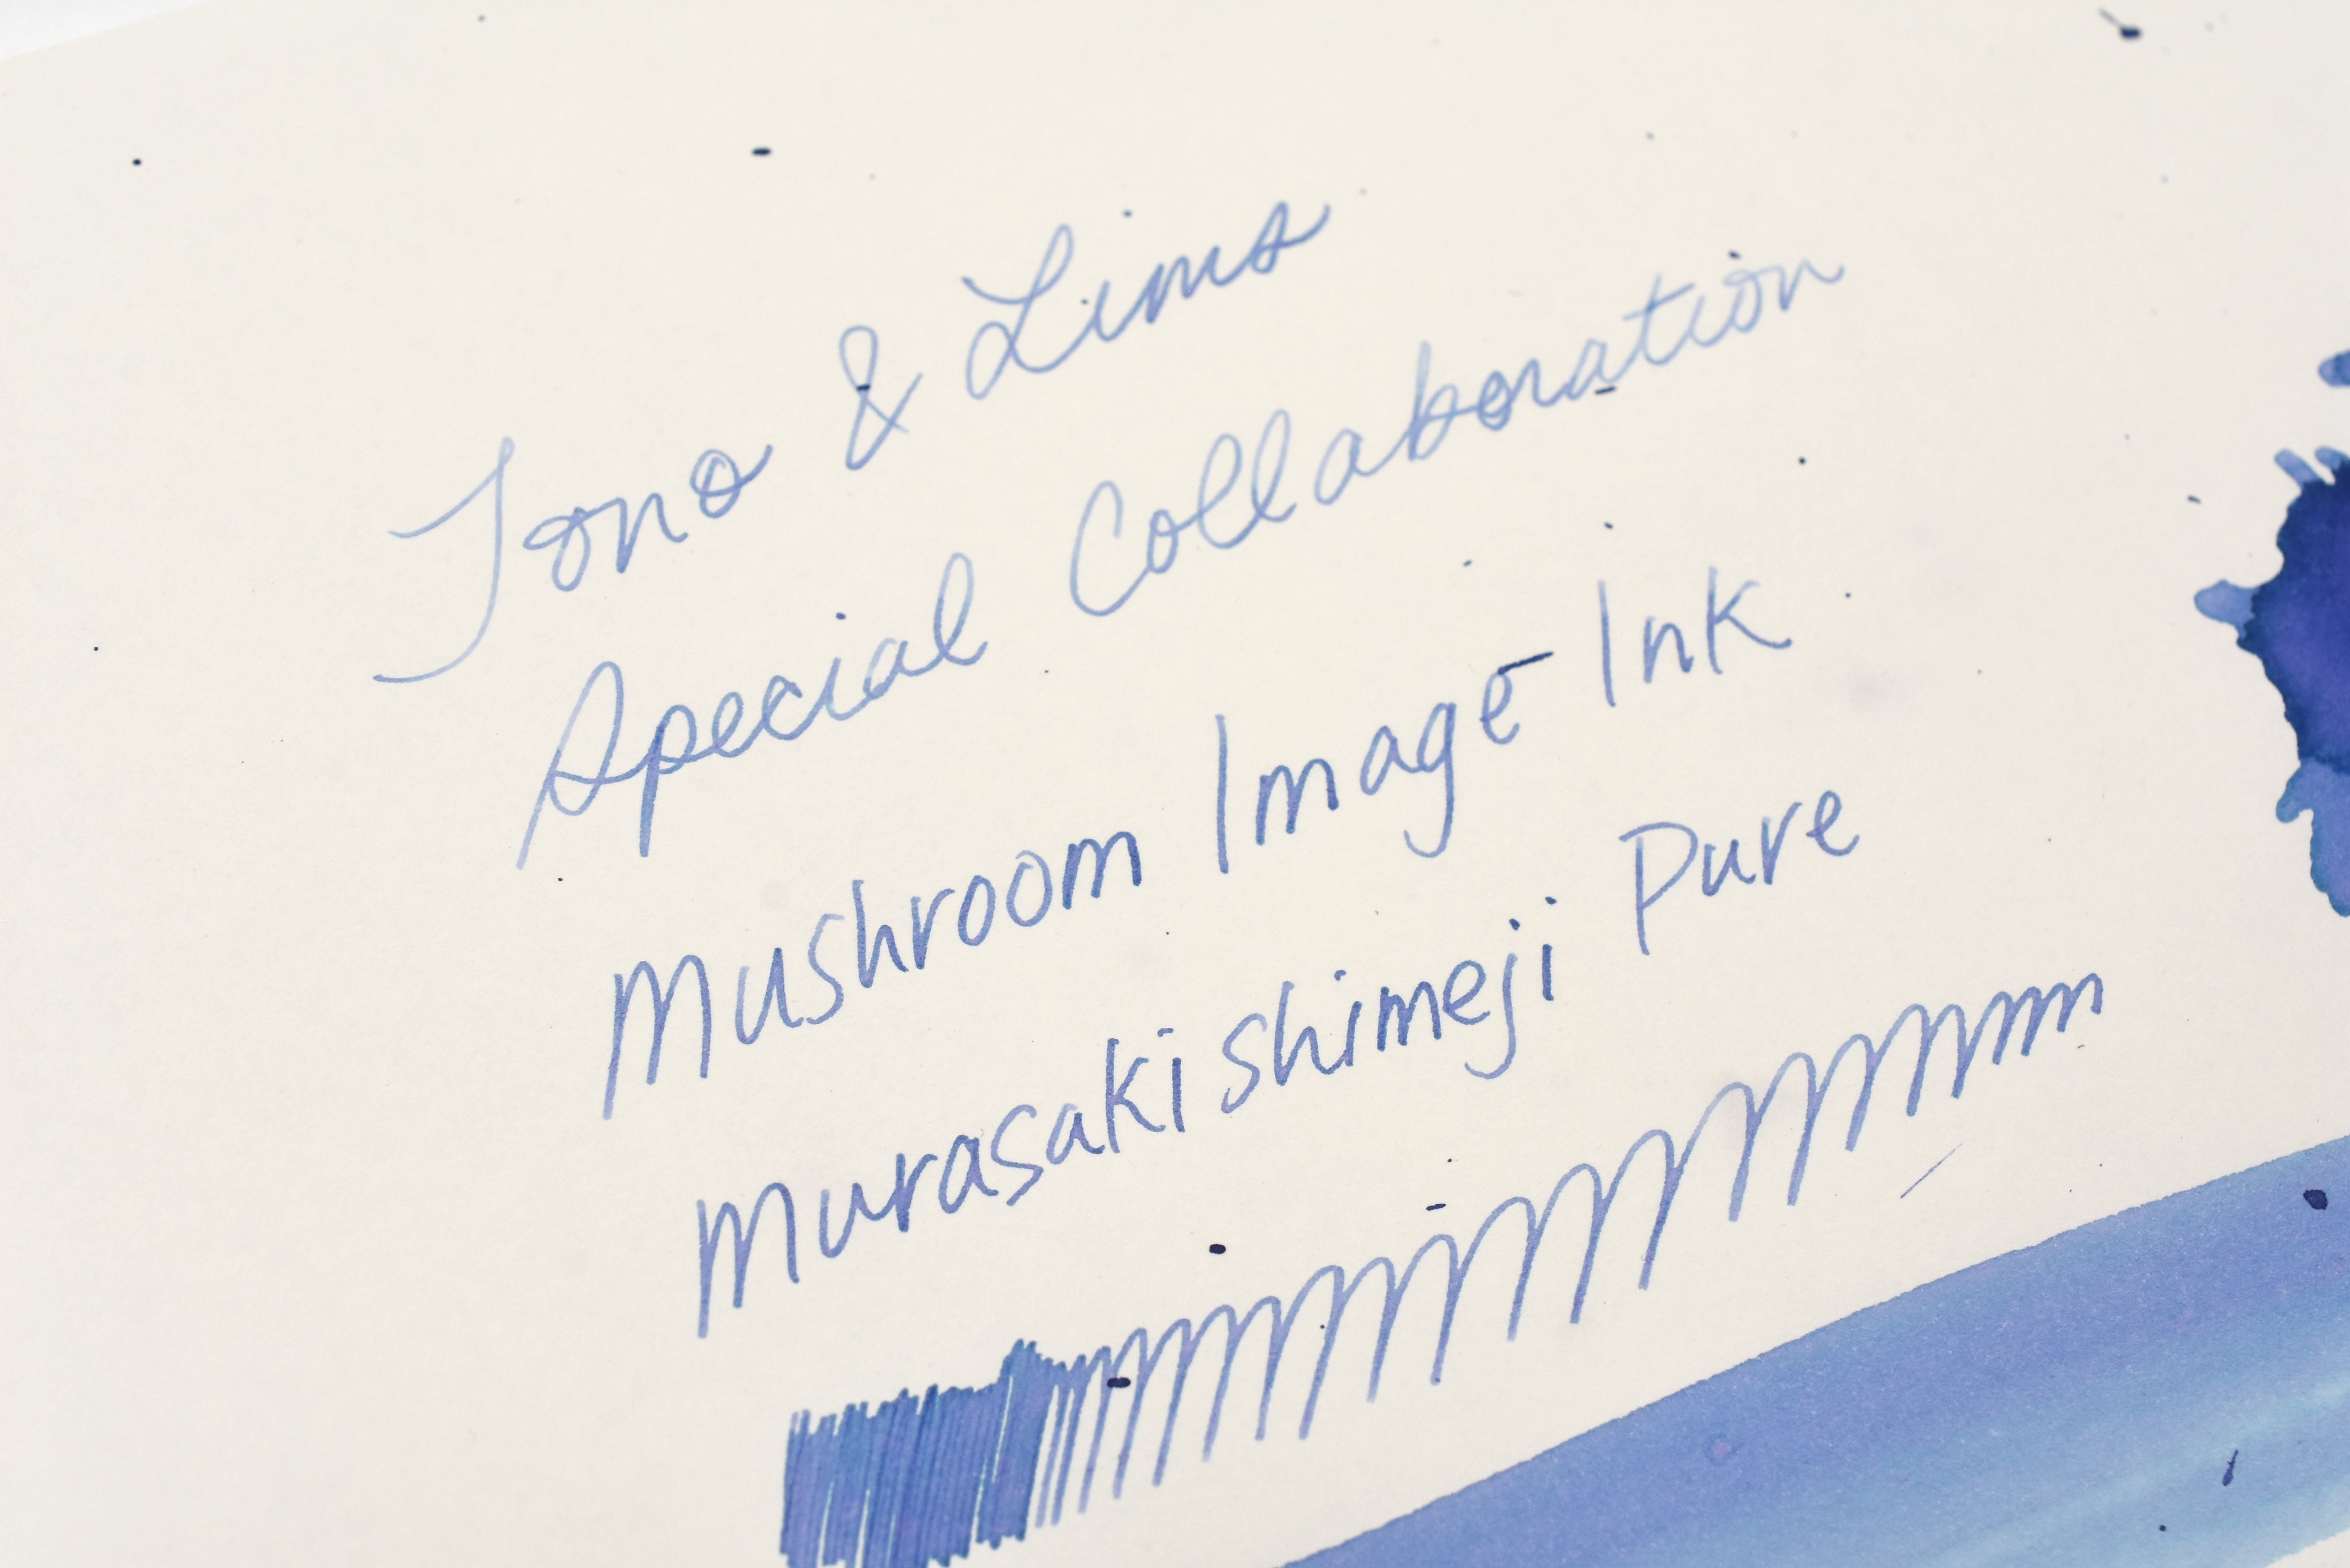 Tono & Lims
Special Collaboration
Mushroom Image Ink
Murasakishimeji Pure